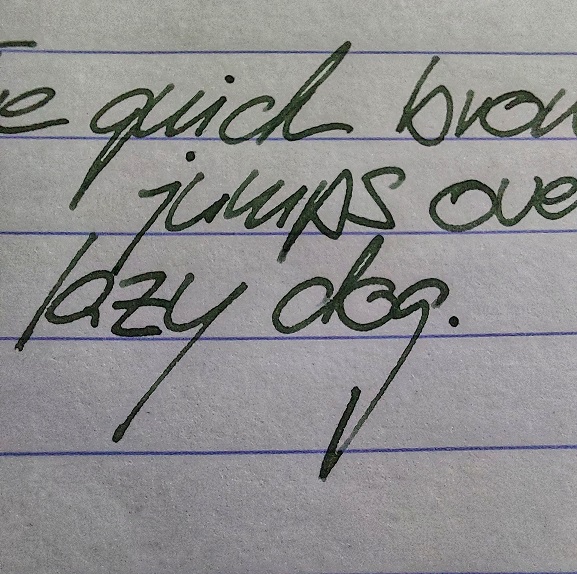 e quick brow
jumps ove
lazy dog.